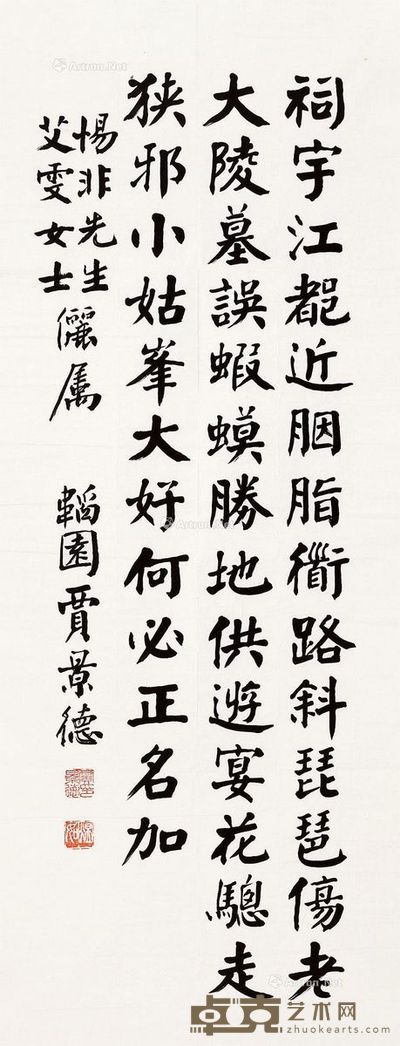 祠宇江都近胭脂衕路斜琵琶傷老
大陵墓誤蝦蟆勝地供遊宴花驄走
狹邪小姑峯大好何必正名加
惕非先生
艾雯女士
儷属
韜園賈景德
Artron.Net
卓克艺术网
zhuokearts.com